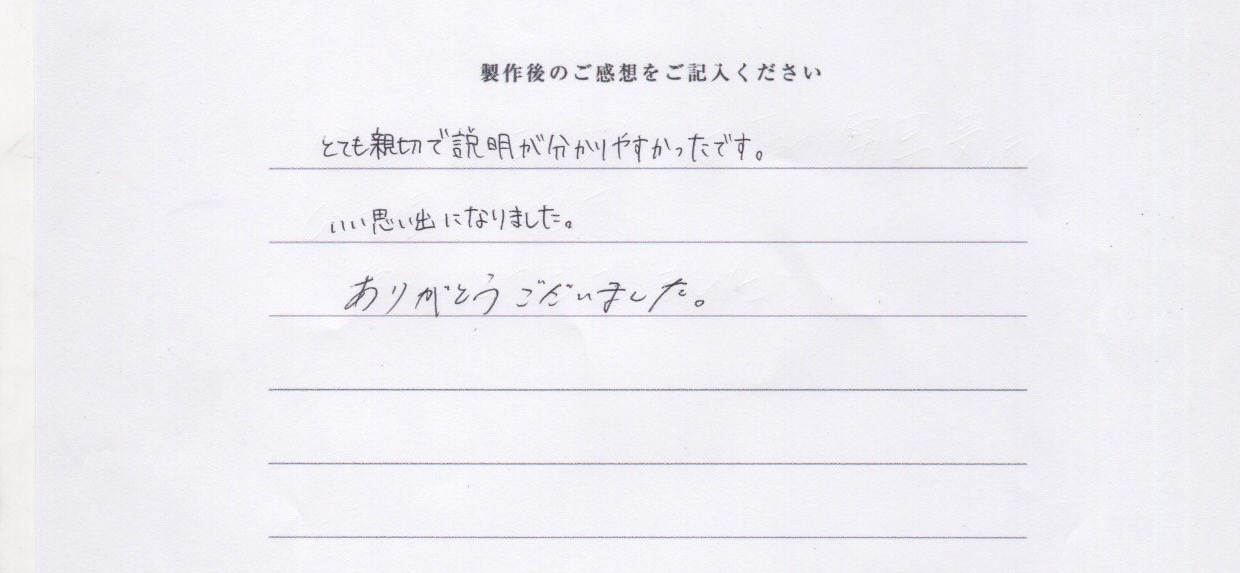 製作後のご感想をご記入ください
とても親切で説明が分かりやすかったです。
いい思い出になりました。
ありがとうございました。